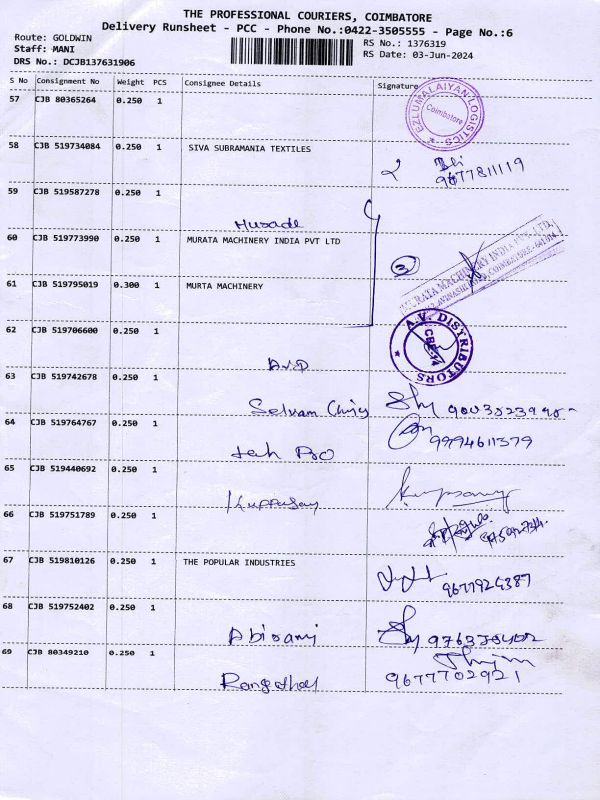 THE PROFESSIONAL COURIERS, COIMBATORE
Delivery Runsheet - PCC - Phone No.:0422-3505555 - Page No.:6
Route: GOLDWIN
RS No.: 1376319
Staff: MANI
RS Date: 03-Jun-2024
DRS No.: DCJB137631906
S No Consignment No Weight PCS Consignee Details Signature
57 CJB 80365264 0.250 1
EZLUMALAIYAN LOGISTICS
Coimbatore
58 CJB 519734084 0.250 1 SIVA SUBRAMANIA TEXTILES
9677811119
59 CJB 519587278 0.250 1
60 CJB 519773990 0.250 1 MURATA MACHINERY INDIA PVT LTD
3
MURATA MACHINERY INDIA PVT. LTD.
61 CJB 519795019 0.300 1 MURTA MACHINERY
62 CJB 519706600 0.250 1
A.V. DISTRIBUTORS
CBE-14
63 CJB 519742678 0.250 1
Selvam
64 CJB 519764767 0.250 1
9994611379
65 CJB 519440692 0.250 1
66 CJB 519751789 0.250 1
67 CJB 519810126 0.250 1 THE POPULAR INDUSTRIES
68 CJB 519752402 0.250 1
Abirami
69 CJB 80349210 0.250 1
9677702921